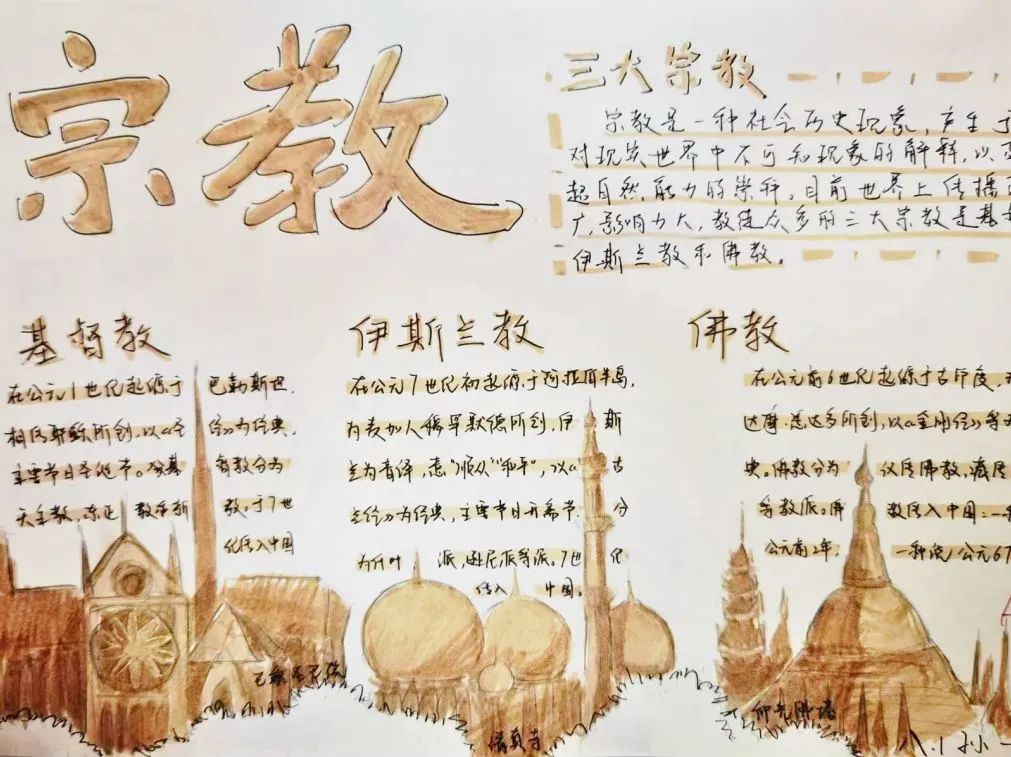 宗教
三大宗教
宗教是一种社会历史现象，产生于
对现实世界中不可知现象的解释，以及
超自然能力的崇拜。目前世界上传播
广，影响力大，教徒众多的三大宗教是基
伊斯兰教和佛教。
基督教
在公元1世纪起源于 巴勒斯坦.
相传耶稣所创，以《圣 经》为经典，
主要节日圣诞节。分基 督教分为
天主教，东正 教等新 教。于7世
纪传入中国
伊斯兰教
在公元7世纪初起源于阿拉伯半岛，
为麦加人穆罕默德所创，伊 斯
兰为音译，意"顺从""和平"，以《 古
兰经》为经典，主要节日开斋节. 分
为什叶 派，逊尼派等派。7世 纪
传入 中国。
佛教
在公元前6世纪起源于古印度，
达摩·悉达多所创，以《金刚经》等
典。佛教分为 汉传佛教，藏传
等教派。佛 教传入中国：一
公元前2年； 一种说公元67
巴黎圣母院
清真寺
仰光佛塔